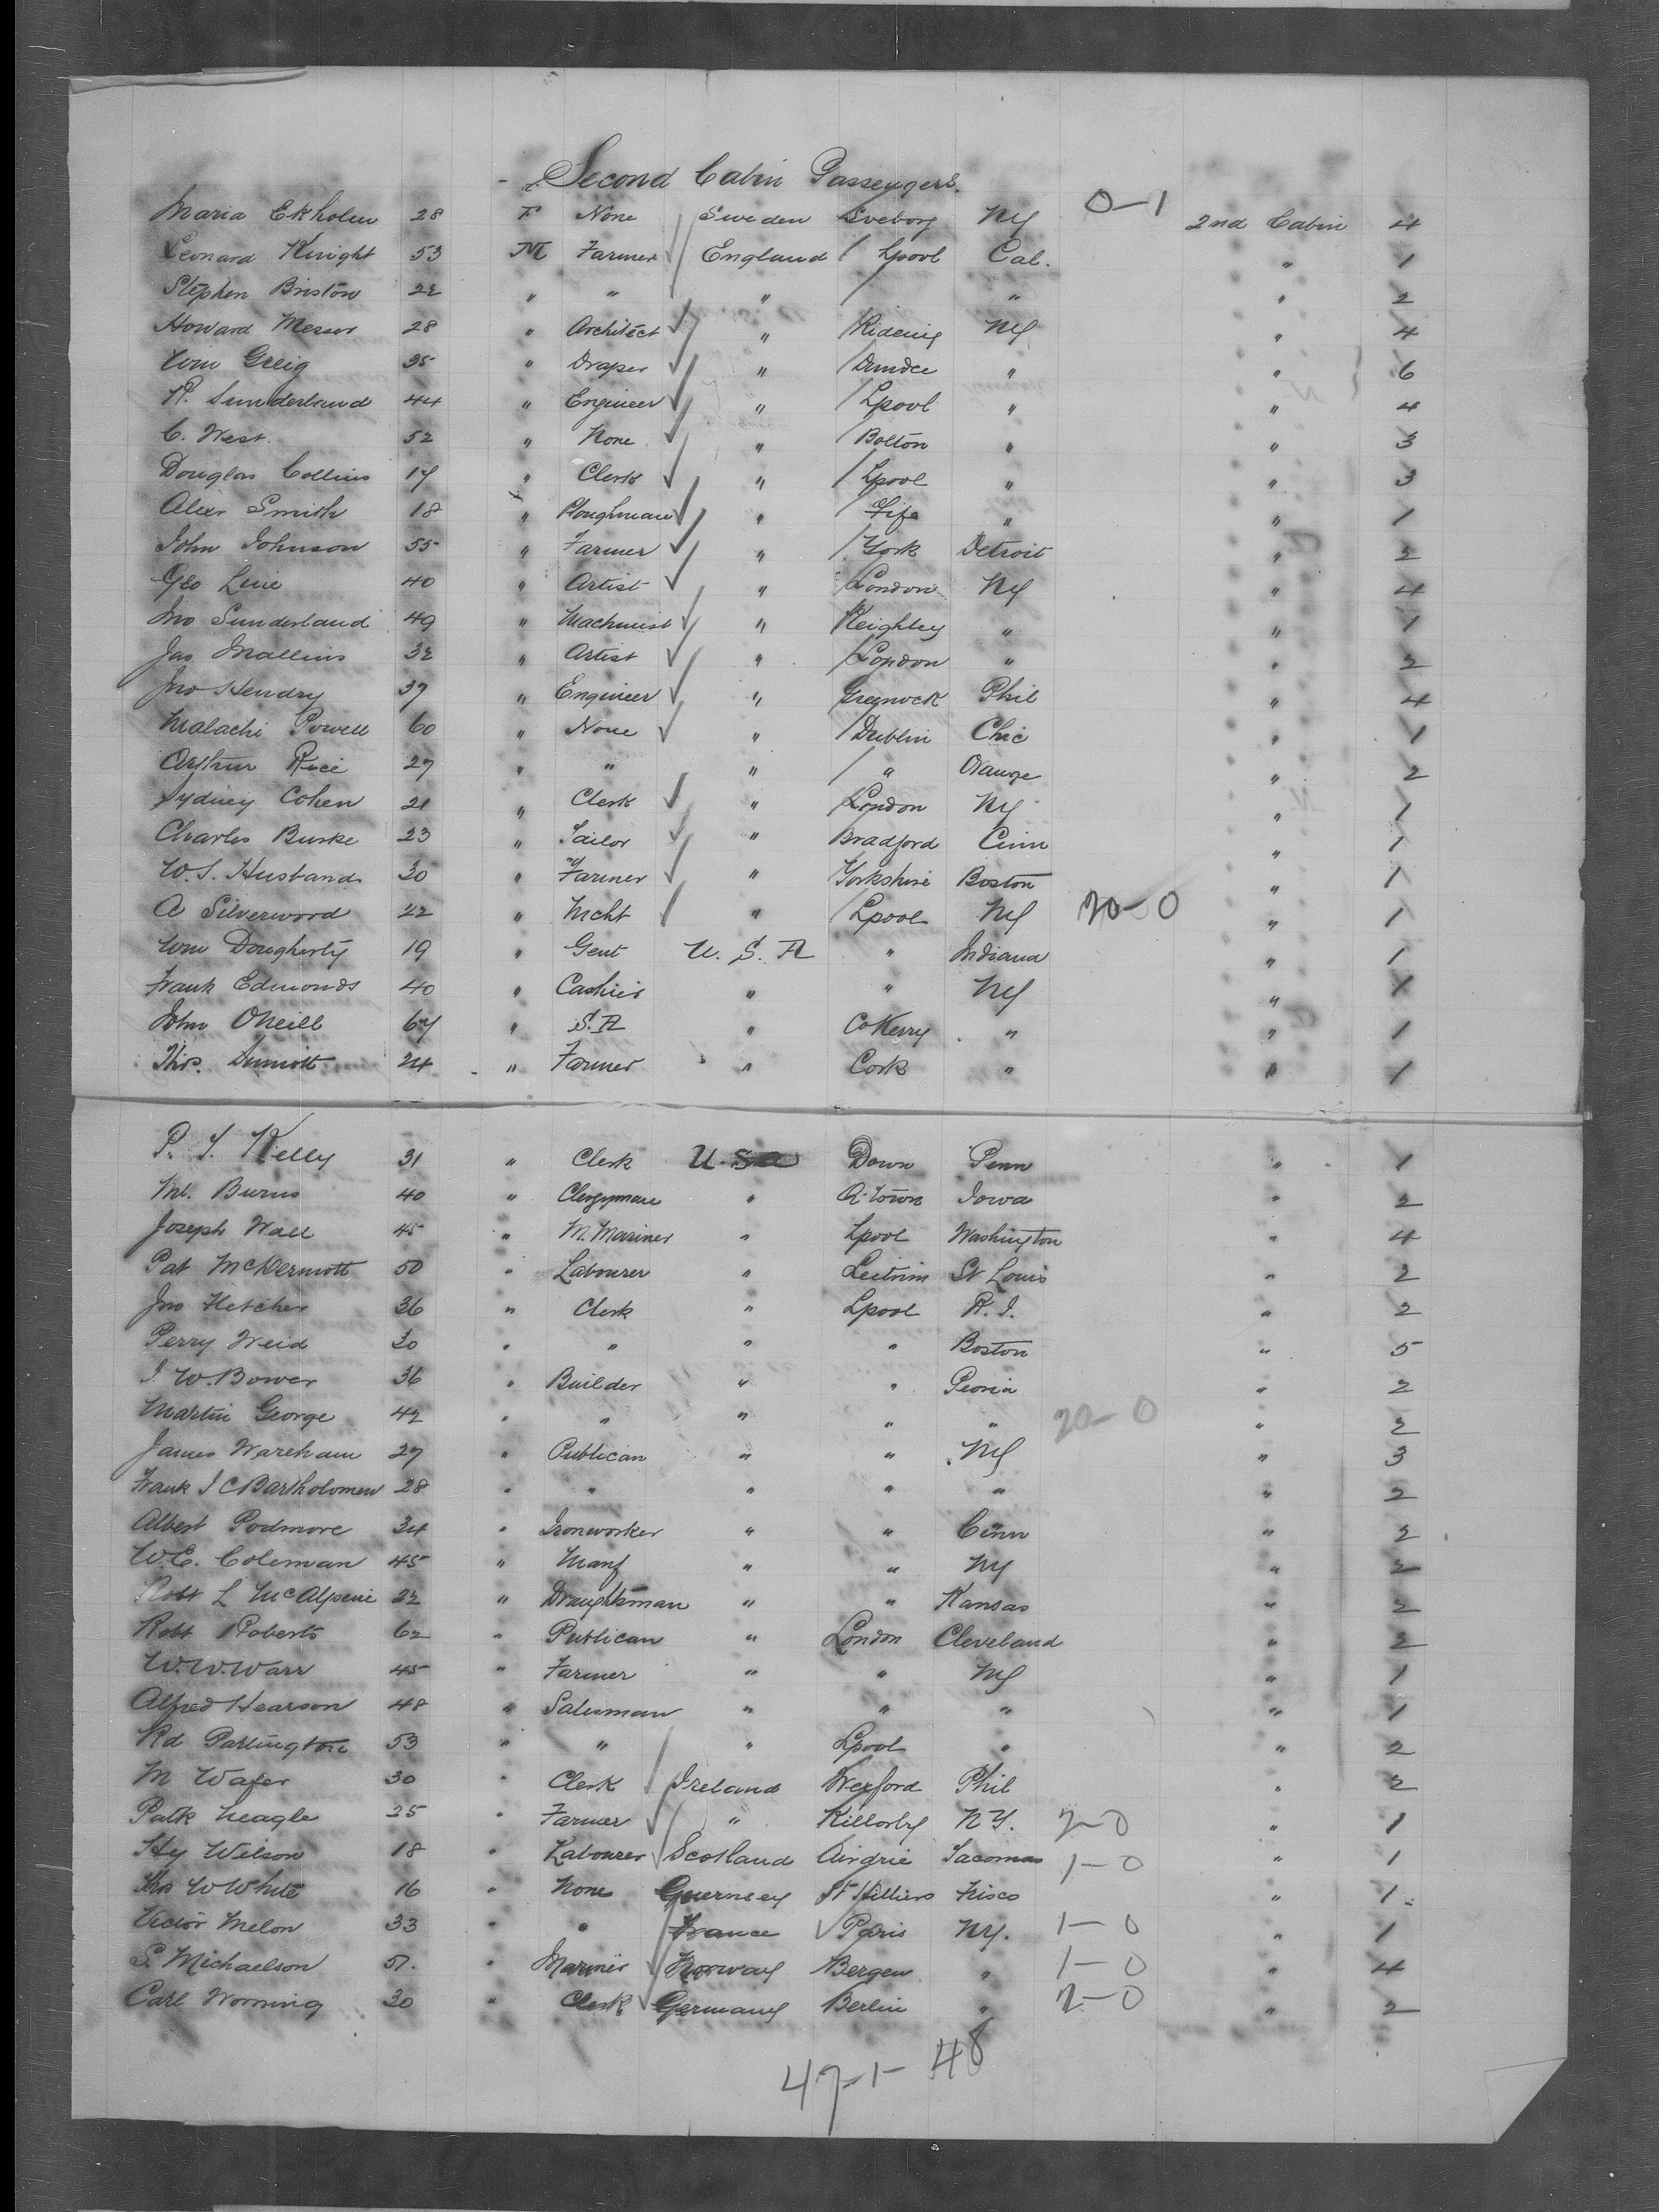 Second Cabin Passengers.
Maria Ekholm 28 F None Sweden Sveborg NY 0-1 2nd Cabin 4
Leonard Knight 53 M Farmer England Lpool Cal. " 1
Stephen Briston 22 " " " " " 2
Howard Messer 28 " Architect " NY " 4
Wm Greig 35 " Draper " Dundee " " 6
R. Sunderland 44 " Engineer " Lpool " " 4
C. West 52 " None " Bolton " " 3
Douglas Collins 17 " Clerk " Lpool " " 3
Alexr Smith 18 " Ploughman " Fife " " 1
John Johnson 55 " Farmer " York Detroit " 2
Geo 40 " Artist " London NY " 4
Jno Sunderland 49 " Machinist " Keighley " " 1
Jas Mallins 32 " Artist " London " " 2
Jno Hendry 37 " Engineer " Greenock Phil " 4
Malachi Powell 60 " None " Dublin Chic " 1
Arthur Rice 27 " " " " Orange " 2
Sydney Cohen 21 " Clerk " London NY " 1
Charles Burke 23 " " Bradford Cinn " 1
W.S. Husband 30 " Farmer " Yorkshire Boston " 1
A Silverwood 22 " Mcht " Lpool NY 20-0 " 1
Wm Dougherty 19 " Gent U.S.A " Indiana " 1
Frank Edmonds 40 " Cashier " " NY " 1
John ONeill 67 " " Co Kerry " " 1
Thos. 24 " Farmer " Cork " " 1
P. J. Kelly 31 " Clerk U.S.A Down Penn " 1
Ml. Burns 40 " Clergyman " Q. Town Iowa " 2
Joseph Wall 45 " M. Mariner " Lpool Washington " 4
Pat McDermott 50 " Labourer " Leitrim St Louis " 2
Jno Fletcher 36 " Clerk " Lpool R.I. " 2
Perry Weid 30 " " " " Boston " 5
J. W. Bower 36 " Builder " " Peoria " 2
Martin George 42 " " " " " 20-0 " 2
James Wareham 27 " Publican " " NY " 3
Frank J C Bartholomew 28 " " " " " " 2
Albert Podmore 34 " Ironworker " " Cinn " 2
W.E. Coleman 45 " Manf " " NY " 2
Robt L McAlpine 22 " Draughtsman " " Kansas " 2
Robt Roberts 62 " Publican " London Cleveland " 2
W.W. Warr 45 " Farmer " " NY " 1
Alfred Hearson 48 " Salesman " " " " 1
Rd Partington 53 " " " Lpool " " 2
M Wafer 30 " Clerk Ireland Wexford Phil " 2
Patk Neagle 25 " Farmer " NY. 2-0 " 1
Hy Wilson 18 " Labourer Scotland Airdrie Tacoma 1-0 " 1
Thos W White 16 " None Guernsey St Hilliers Frisco " 1
Victor Melon 33 " " France Paris NY. 1-0 " 1
S. Michaelson 57. " Mariner Norway Bergen " 1-0 " 4
Carl 30 " Clerk Germany Berlin " 2-0 " 2
47-1- 48